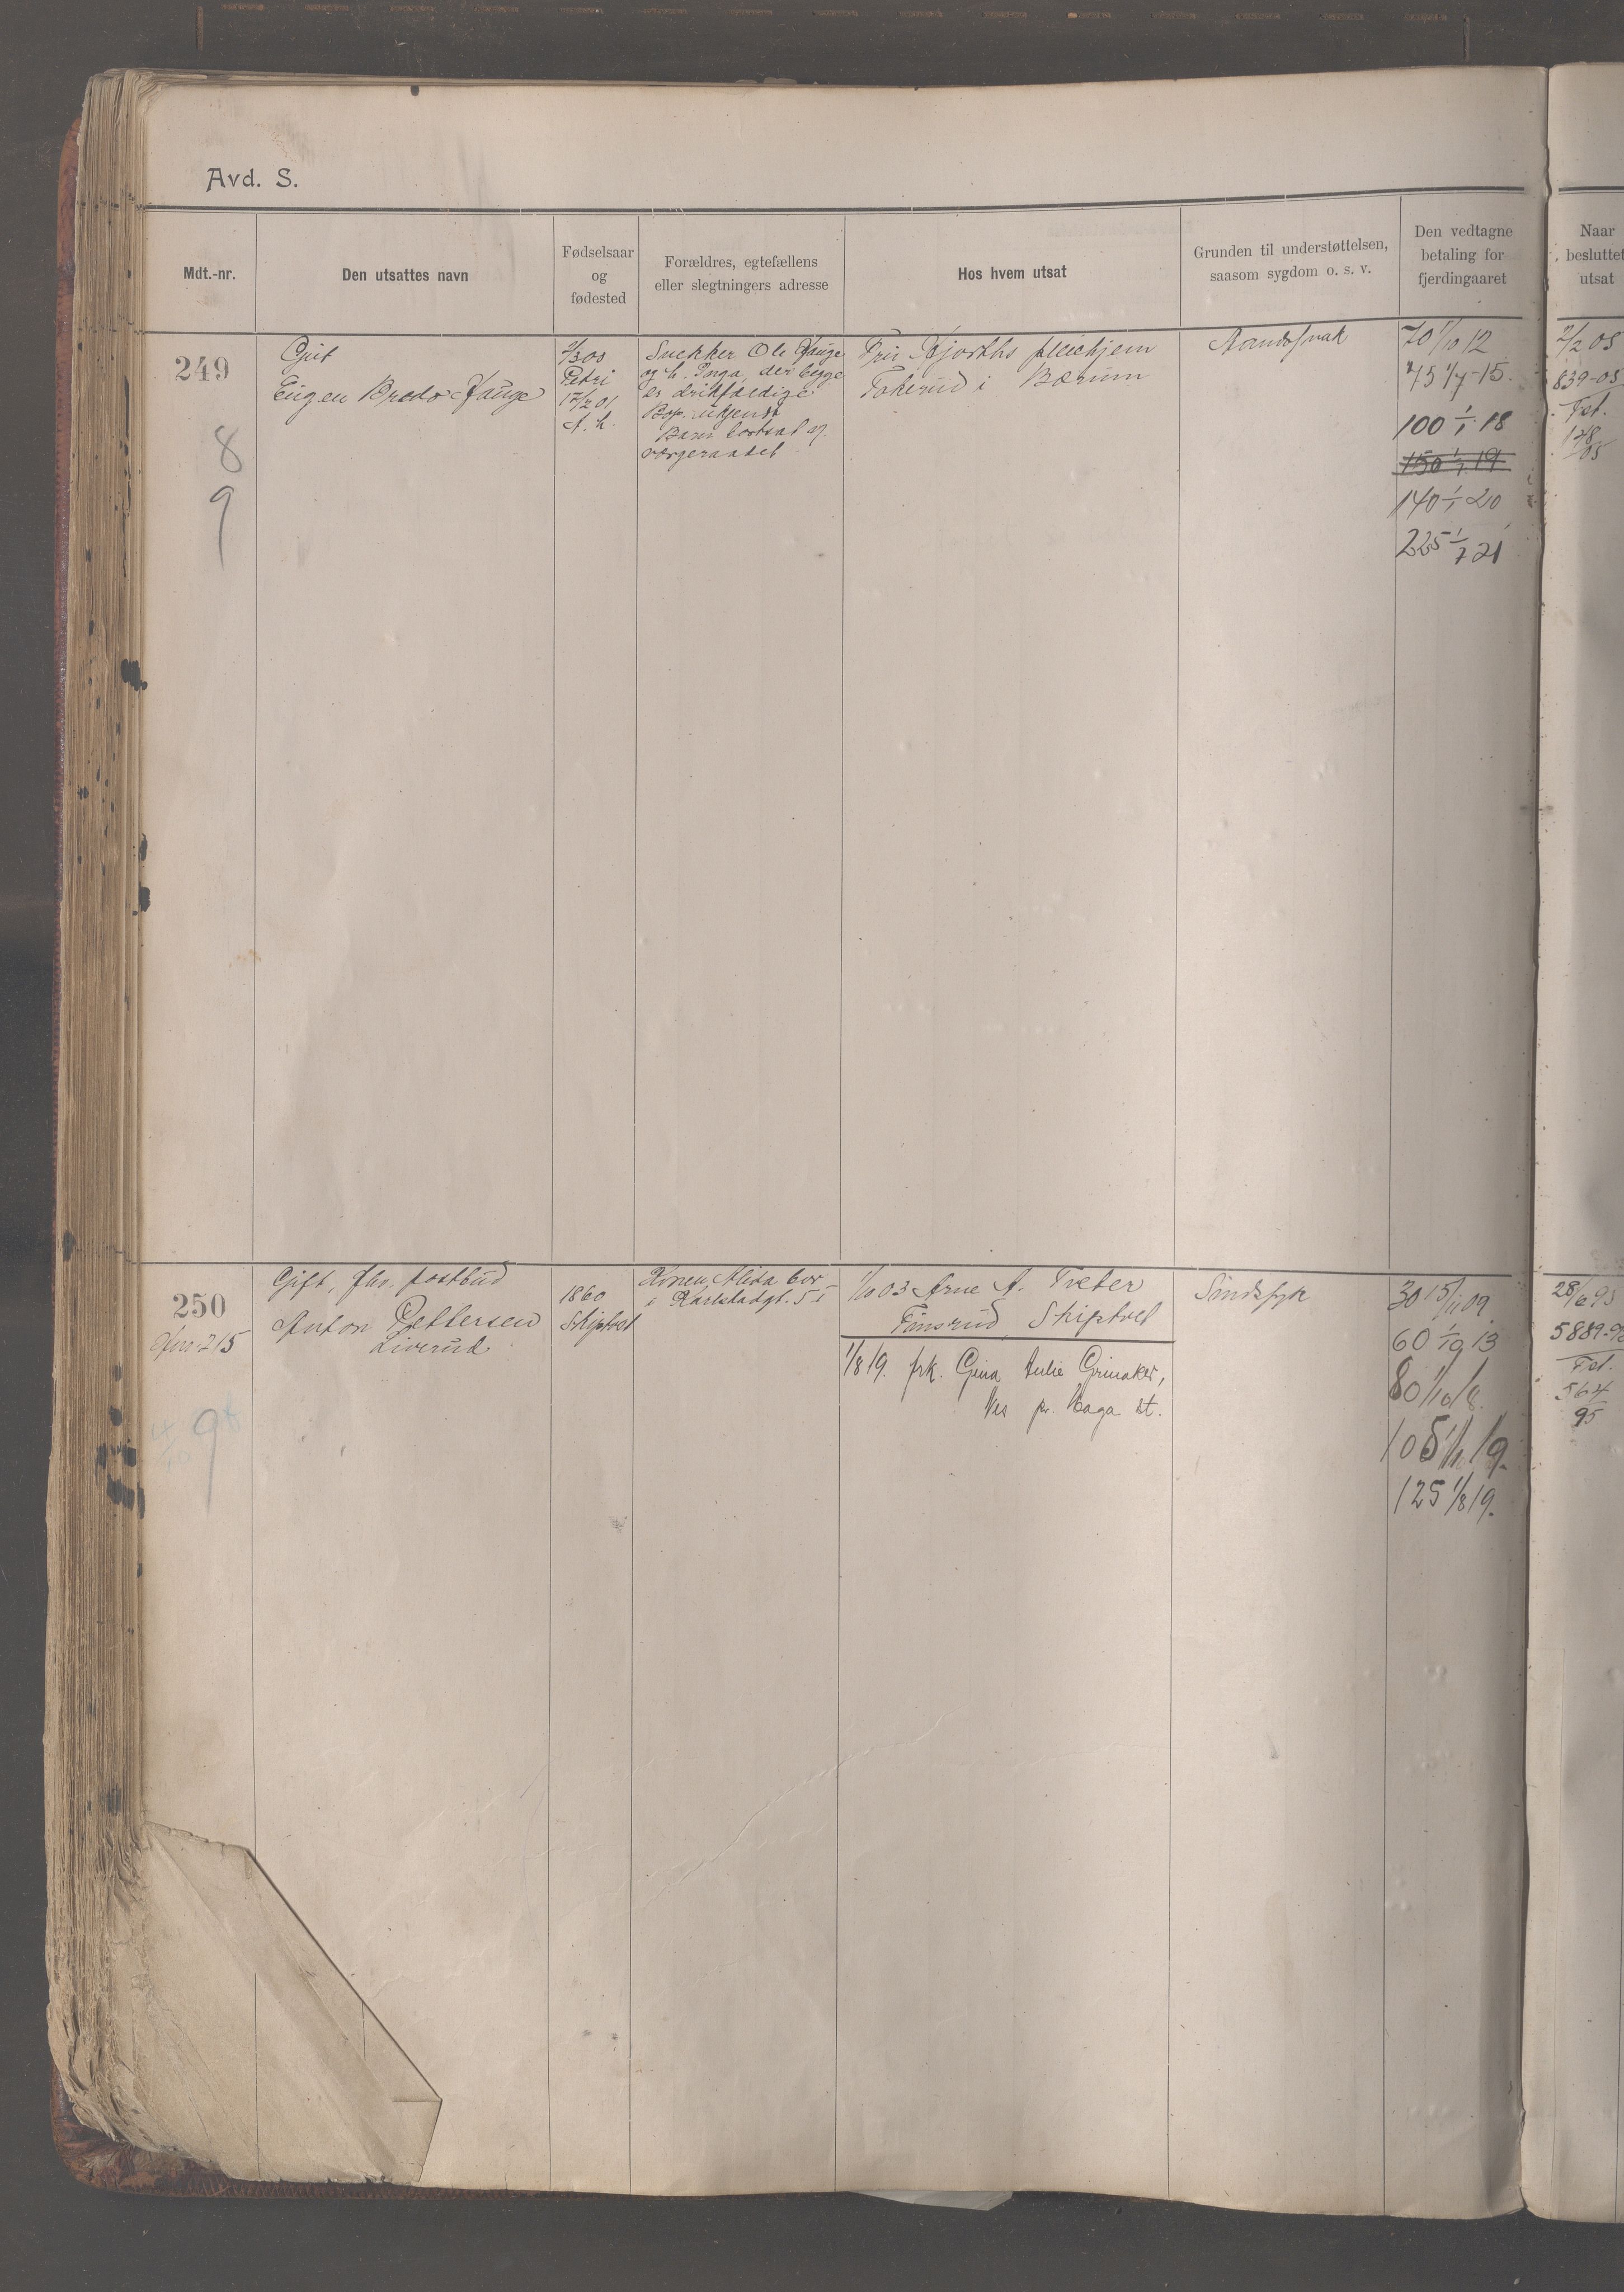 Avd. S.
Mdt.-nr.
Den utsattes navn
Fødselsaar
og
fødested
Forældres, egtefællens
eller slegtningers adresse
Hos hvem utsat
Grunden til understøttelsen,
saasom sygdom o. s. v.
Den vedtagne
betaling for
fjerdingaaret
Naar
besluttet
utsat
249
8
9
Gut
Eugen Bredo Hauge
Petri
17/2 01
Snekker Ole Hauge
og h. Inga, der begge
er drikfældige.
Bop. ukjendt
Barn bortsat af
værgeraadet
Fru Hjorths pleiehjem
Tokerud i Bærum
Aandssvak
70 1/10 12
75 1/7-15.
100 1/1 18
150 1/7 19
140 1/1 20
225 1/7 21
2/2 05
839-05
Fol.
128
05
250
215
9
Gift, fhv. postbud
Anton Pettersen
Liverud
1860
Skiptvet
Konen Alida bor
i Karlstadgt. 5 I
1/10 03 Arne A. Tveter
Finsrud Skiptvet
1/8 19. frk. Gina Julie Grinaker,
Nes pr. Haga st.
Sindssyk
30 15/11 09
60 1/10 13
80 1/10 18.
105 1/1 19.
125 1/8 19.
28/6 95
5889-95
Fol.
564
95